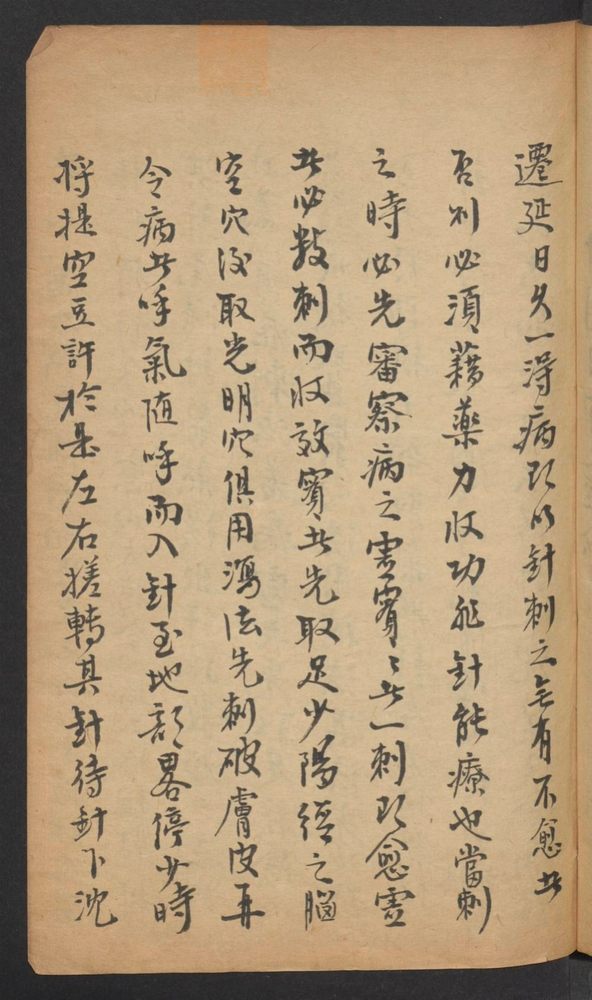 遷延日久一得病即以針刺之無有不愈者
否則必須藉藥力收功非針能療也當刺
之時必先審察病之虛實〻者一刺即愈虛
者必數刺而收效實者先取足少陽經之腦
空穴後取光明穴俱用瀉法先刺破膚皮再
令病者呼氣随呼而入針至地部畧停少時
將提空豆許於是左右搓轉其針待針下沈